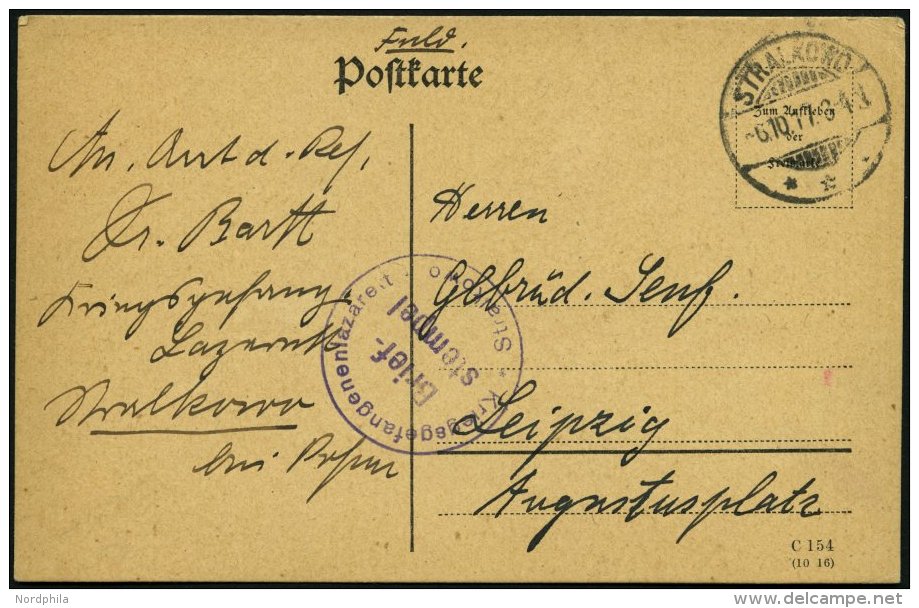 Feld.
Postkarte
STRALKOWO
-6.10.17. 3-4 N
Zum Aufkleben
der
Freimarke
An. Arzt d. Res.
Dr. Bartt
Kriegsgefang.
Lazarett
Stralkowo
bei Posen
Herren
Gebrüd. Senf.
Leipzig
Augustusplatz
Kriegsgefangenenlazarett * Stralkowo *
Brief-
stempel
C 154
(10 16)
Nordphila
delcampe.net